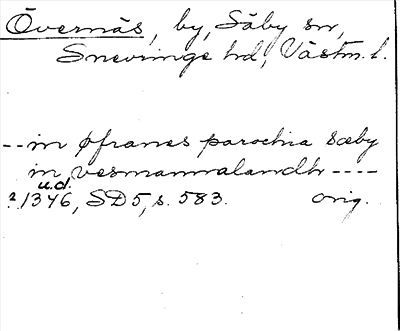 Övernäs, by, Säby sn,
Snevringe hd, Västm. l.
-- in øfranes parochia sæby
in vesmannalandh ----
u.d.
? 1346, SD5, s. 583. orig.